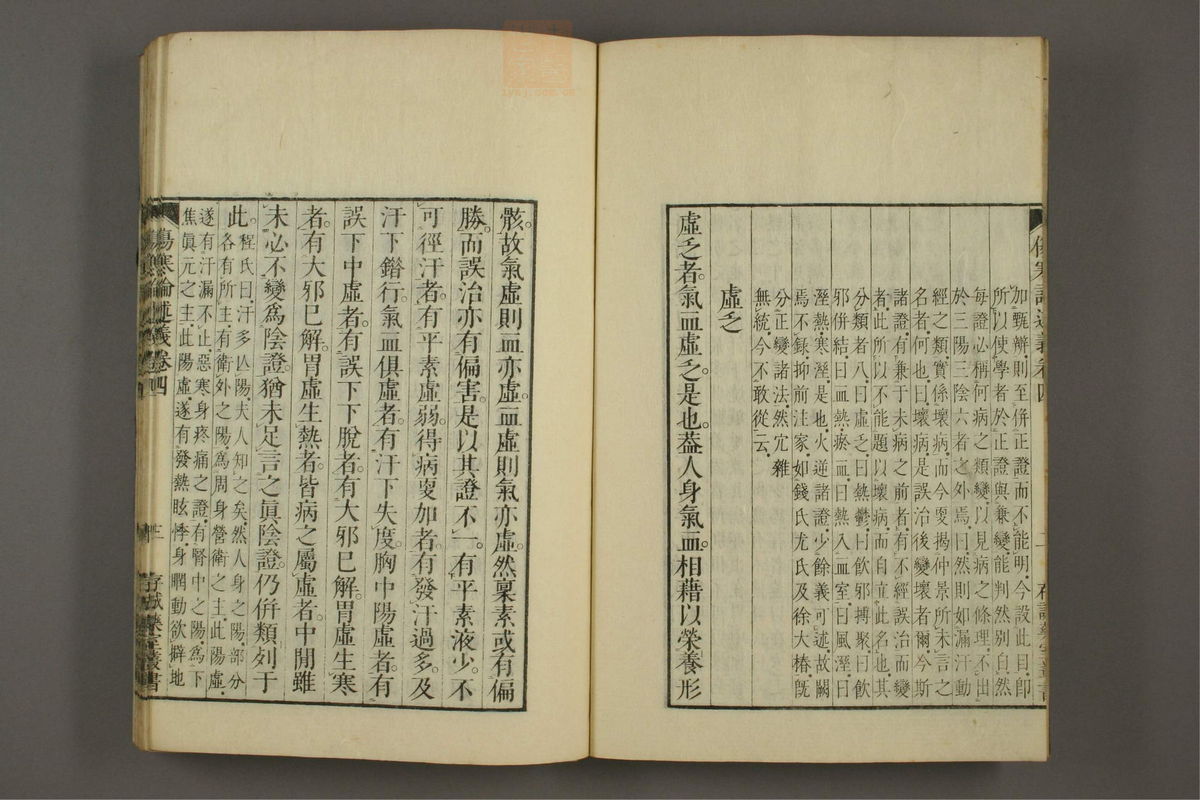 加甄辨則至併正證而不能明今設此目即
所以使學者於正證與兼變能判然別白然
每證必稱何病之類變以見病之條理不出
於三陽三陰六者之外焉曰然則如漏汗動
經之類實係壞病而今更揭仲景所未言之
名者何也曰壞病是誤治後變壞者爾今斯
諸證有兼于未病之前者有不經誤治而變
者此所以不能題以壞病而自立此名也其
分類者八曰虛乏曰熱鬱曰飲邪搏聚曰飲
邪併結曰血熱瘀血曰熱入血室曰風溼曰
溼熱寒溼是也火逆諸證少餘義可述故闕
焉不錄抑前注家如錢氏尤氏及徐大椿既
分正變諸法然宂雜
無統今不敢從云
虛乏
虛乏者氣血虛乏是也蓋人身氣血相藉以榮養形
骸故氣虛則血亦虛血虛則氣亦虛然稟素或有偏
勝而誤治亦有偏害是以其證不一有平素液少不
可徑汗者有平素虛弱得病更加者有發汗過多及
汗下錯行氣血俱虛者有汗下失度胸中陽虛者有
誤下中虛者有誤下下脫者有大邪已解胃虛生寒
者有大邪已解胃虛生熱者皆病之屬虛者中閒雖
未必不變爲陰證猶未足言之眞陰證仍併類列于
此程氏曰汗多亾陽夫人知之矣然人身之陽部分
各有所主有衛外之陽爲周身營衛之主此陽虛
遂有汗漏不止惡寒身疼痛之證有腎中之陽爲下
焦眞元之主此陽虛遂有發熱眩悸身瞤動欲擗地
傷寒論述義卷四
存誠藥室叢書